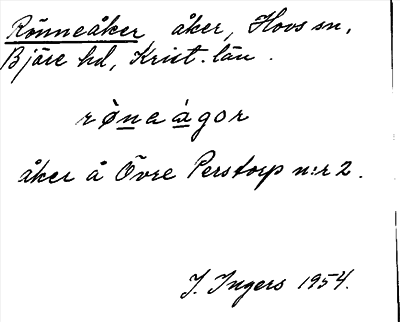 Rönneåker åker, Hovs sn,
Bjäre hd, Krist. län.
rønaágor
åker å Övre Perstorp n:r 2.
I. Ingers 1954.